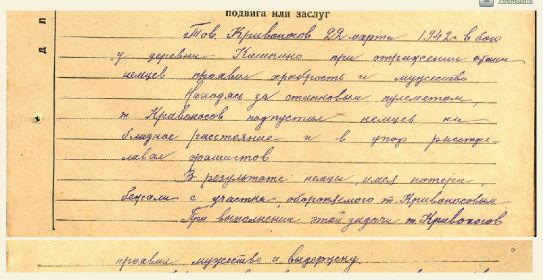 Уменьшить
подвига или заслуг
Тов. Кривоносов 22 марта 1942 г. в бою
у деревни при отражении атаки
немцев проявил храбрость и мужество
Находясь за станковым пулеметом,
т. Кривоносов подпустил немцев на
близкое расстояние и в упор расстре-
ливал фашистов
В результате немцы, имея потери
бежали с участка обороняемого т. Кривоносовым
При выполнении этой задачи т. Кривоносов
проявил мужество и выдержку